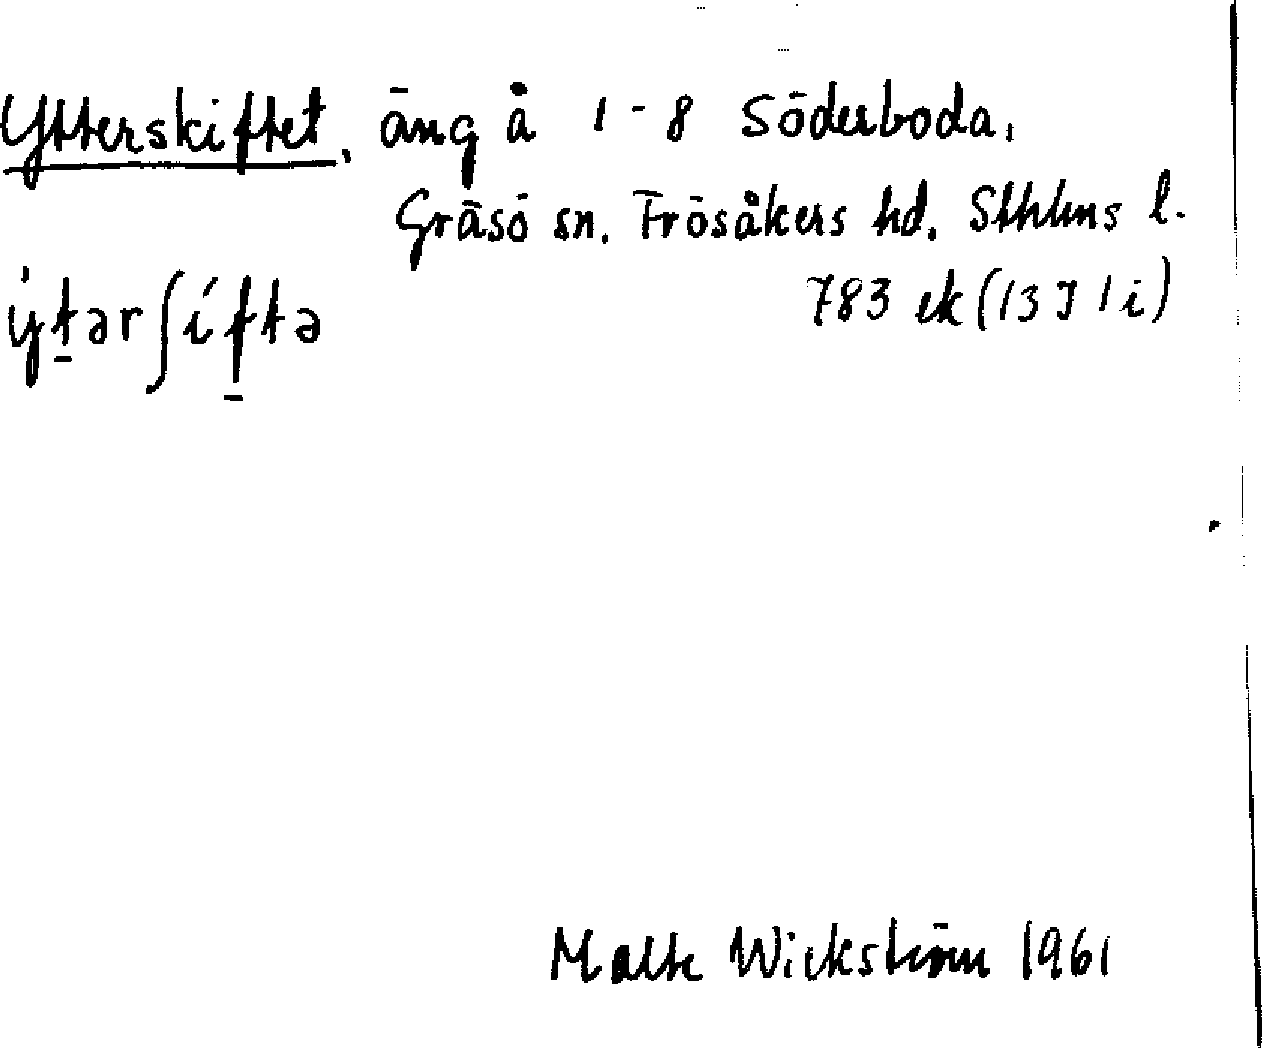 Ytterskiftet, äng å 1-8 Söderboda,
Gräsö sn. Frösåkers hd. Sthlms l.
ýt̠ərʃíf̠tə 783 ek (13 I 1 i)
Malte Wickström 1961